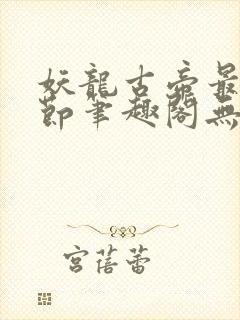 妖龍古帝最
節筆趣閣無
宮蓓蕾